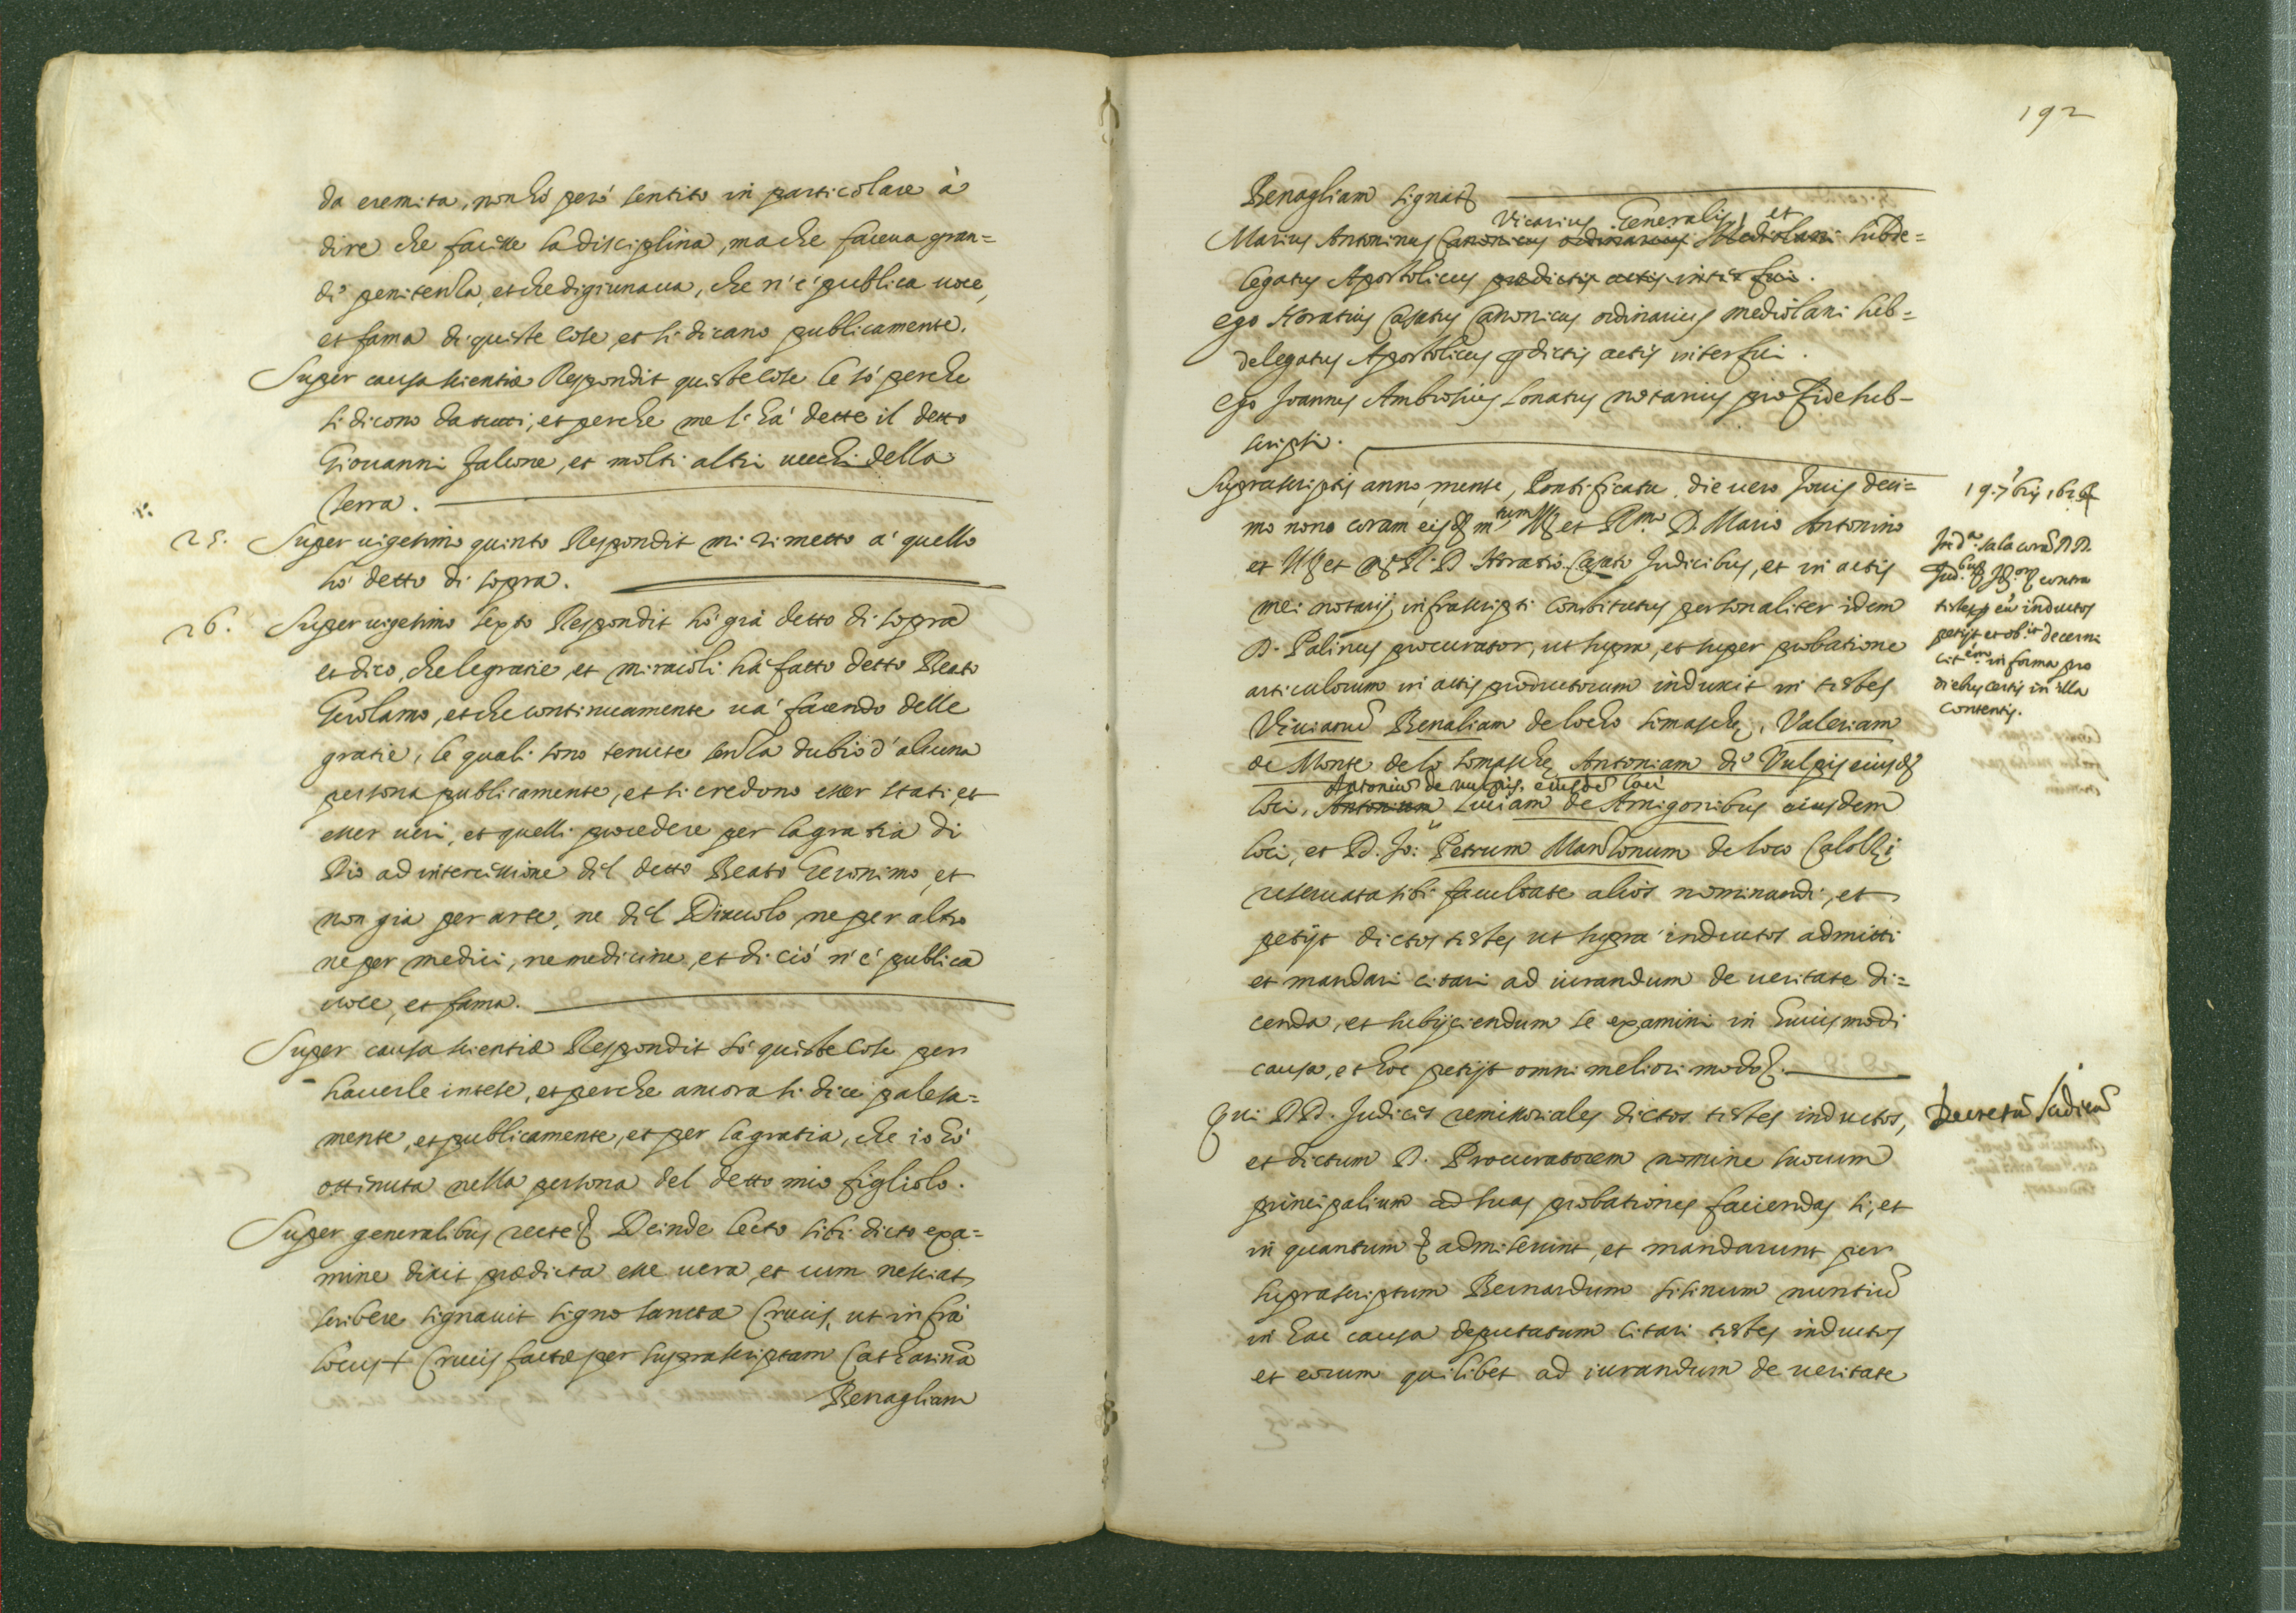 da eremita, non hò però sentito in particolare à
dire che facesse la disciplina, ma che faceua gran=
di penitenza, et che digiunaua, che n'è publica uoce,
et fama di queste cose, et si dicano publicamente.
Super causa scientiæ Respondit queste cose le sò perche
si dicono da tutti, et perche me li hà dette il detto
Giouanni Falcone, et molti altri uecchi della
Terra.
25. Super uigesimo quinto Respondit mi rimetto a' quello
hò detto di sopra.
26. Super uigesimo sexto Respondit hò già detto di sopra
et dico, che le gratie, et miracoli hà fatto detto Beato
Gerolamo, et che continuamente uà facendo delle
gratie, le quali sono tenute senza dubio d'alcuna
persona publicamente, et si credono esser stati, et
esser ueri, et quelli procedere per la gratia di
Dio ad intercissione dil detto Beato Gieronimo, et
non gia per arte, ne dil Diauolo, ne per altro
ne per medici, ne medicine, et di ciò n'è publica
uoce, et fama.
Super causa scientiæ Respondit sò queste cose per
hauerle intese, et perche ancora si dice palesa=
mente, et publicamente, et per la gratia, che io hò
ottinuta nella persona del detto mio figliolo.
Super generalibus recte Deinde lecto sibi dicto exa=
mine dixit prædicta esse uera, et cum nesciat
scribere signauit signo sanctæ Crucis, ut infrà
locus + Crucis factæ per suprascriptam Catharinā
Benagliam
192
Benagliam signat
Vicarius Generalis, et
Marius Antoninus Canonicus ordinarius Mediolani subde=
legatus Apostolicus prædictis actis interfui.
ego Horatius Casatus Canonicus ordinarius mediolani sub=
delegatus Apostolicus pdictis actis interfui.
ego Joannes Ambrosius Lonatus notarius pro fide sub=
scripsi.
Suprascriptis anno, mense, Pontificatu, die uero Jouis deci=
mo nono coram et R.mo D. Mario Antonino
et Ill et R. D. Horatio Casato Judicibus, et in actis
mei notarij infrascripti Constitutus personaliter idem
D. Palinus procurator, ut supra, et super probatione
articulorum in actis productorum induxit in testes
Viuianū Benaliam de locho Somaschę, Valeriam
de Monte de lo Somaschę Antoniam di Vulpis eiusd
Antoniū de uulpis. eiusdē loci
loci, Antonium Luciam de Arrigonibus eiusdem
loci, et D. Jo: Petrum Manzonum de loco Calolzi
reseruata sibi facultate alios nominandi, et
petijt dictos testes ut supra inductos admitti
et mandari citari ad iurandum de ueritate di=
cenda, et subijciendum se examini in huiusmodi
causa, et hoc petijt omni meliori modo
Qui DD. Judices remissoriales dictos testes inductos,
et dictum D. Procuratorem nomine suorum
principalium ad suas probationes faciendas si, et
in quantum admiserunt, et mandarunt per
suprascriptum Bernardum Sitinum nuntiū
in hac causa deputatum citari testes inductos
et eorum quilibet ad iurandum de ueritate
19. 7bris 162
sala corā DD.
contra
testes inductos
petijt et decerni
in forma pro
diebus certis in illa
contentis.
Decretū Judicū